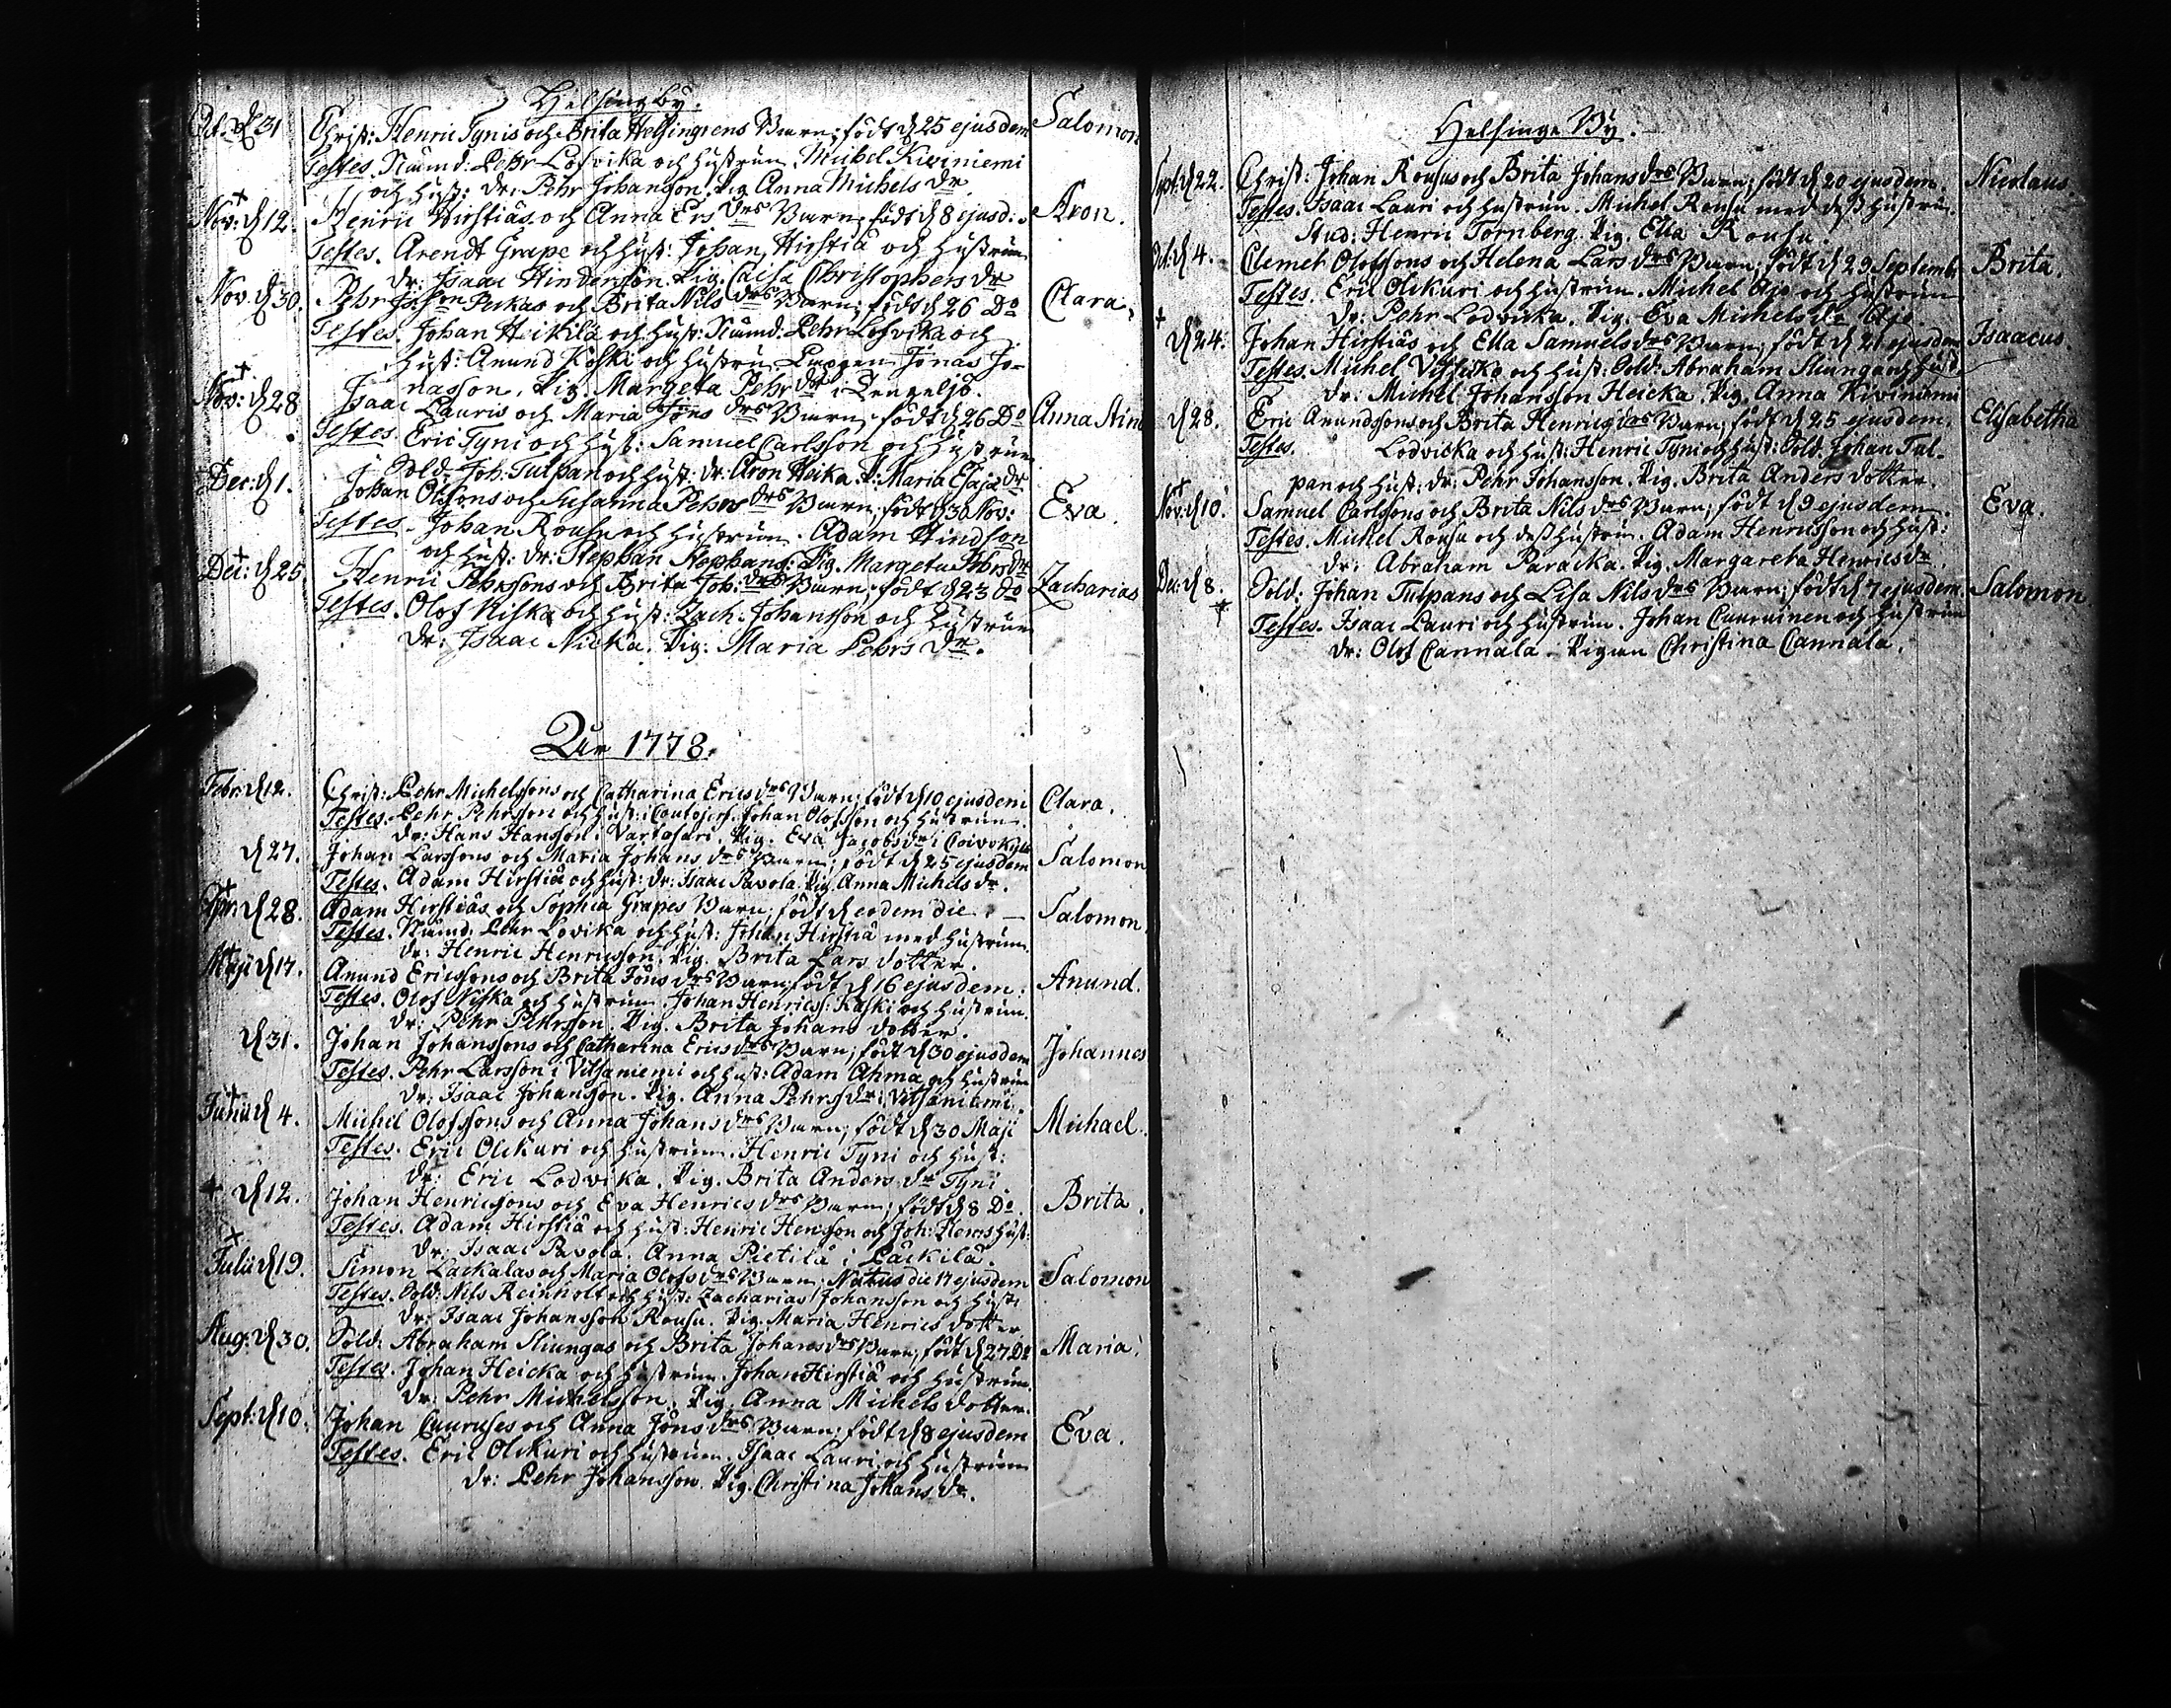 Helsingby.
Oct: d 31 Christ: Henric Tynis och Brita Helsingrens Barn; födt d 25 ejusdem Salomon
Testes. Nämnd. Pehr Lofvika och hustrun Michel Kiviniemi
och hust: dr: Pehr Johansson. Pig. Anna Michels dr
Nov: d 12. Henric Hirstiäs och Anna Ers drs Barn, födt d 8 ejusd. Aron.
Testes. Arendt Grape och hust: Johan Hirstiä och hustrun
dr: Isaac Hindersson. Pig. Caisa Christophers dr
Nov. d 30. Pehr Perkas och Brita Nils drs Barn; födt d 26 Do Clara.
Testes. Johan Heikilä och hust: Nämd. Pehr Lofvika och
hust: Anund Koski och hustru Jonas Jo-
nasson, Pig. Margeta Pehrs dr i Lengelsö.
Nov: d 28 Isaac Lauris och Maria Jöns drs Barn, födt d 26 Do Anna Stina
Testes Eric Tyni och hust: Samuel Carlsson och hustrun
Sold: Joh: Tulpan och hust. dr: Aron Heika. P: Maria Esaiæ dr
Dec: d 1. Johan Olofsons och Susanna Pehrs drs Barn; födt d 30 Nov: Eva.
Testes. Johan Rousu och hustrun. Adam Hindsson
och hust: dr: Stephan Stephans: Pig. Margeta Pehrs dr
Dec: d 25 Henric Pehrssons och Brita Joh: drs Barn; födt d 23 do Zacharias
Testes. Olof Niska och hust: Zach. Johansson och hustrun
dr: Isaac Nicka. Pig: Maria Pehrs dr.
1778.
Febr: d 12. Christ: Pehr Michelssons och Catharina Erics drs Barn; födt d 10 ejusdem Clara.
Testes. Pehr Pehrsson och hust: i Johan Olofsson och hustrun.
dr: Hans Hansson. Pig. Eva Jacobs dr i
d 27. Johan Larssons och Maria Johans drs Barn; födt d 25 ejusdem Salomon
Testes. Adam Hirstiä och hust: dr: Isaac Pavola. Pig. Anna Michels dr.
Apr: d 28. Adam Hirstiäs och Sophia Grapes Barn; födt d eodem die. Salomon.
Testes. Nämd. Pehr Lovika och hust: Johan Hirstiä med hustrun
dr: Henric Henricsson. Pig. Brita Lars dotter.
Maji d 17. Anund Ericssons och Brita Jöns drs Barn; födt d 16 ejusdem. Anund.
Testes. Olof Niska och hustrun. Johan Henricss: Kaski och hustrun.
dr: Pehr Pehrsson. Pig. Brita Johans dotter.
d 31. Johan Johanssons och Catharina Erics drs Barn; födt d 30 ejusdem Johannes
Testes. Pehr Larsson i Vitsaniemi och hust: Adam Ahma och hustrun
dr: Isaac Johansson. Pig. Anna Pehrs dr: Vitsaniemi.
Junii d 4. Michel Olofssons och Anna Johans drs Barn; födt d 30 Maji Michael.
Testes. Eric Olckuri och hustrun. Henric Tyni och hust:
dr: Eric Lodvika. Pig. Brita Anders dr Tyni.
d 12. Johan Henricssons och Eva Henrics drs Barn; födt d 8 Do. Brita.
Testes. Adam Hirstiä och hust: Henric Hensson och Joh: hust:
dr: Isaac Pavola. Anna Pietilä i Päckilä.
Julii d 19. Simon Lackalas och Maria Olofs drs Barn; Natus die 17 ejusdem Salomon
Testes. Sold: Nils Reinholt och hust: Zacharias Johansson och hust:
dr: Isaac Johansson Rousu. Pig. Maria Henrics dotter
Aug: d 30. Sold: Abraham Sliungas och Brita Johans drs Barn; födt d 27 Do Maria.
Testes. Johan Heicka och hustrun. Johan Hirstiä och hustrun.
dr: Pehr Michelsson. Pig. Anna Michels dotter.
Sept: d 10. Johan Cauruses och Anna Jöns drs Barn; födt d 8 ejusdem Eva.
Testes. Eric Olckuri och hustrun. Isaac Lauri och hustrun
dr: Pehr Johansson. Pig. Christina Johans dr.
Helsinge By.
Sept: d 22. Christ: Johan Rousus och Brita Johans drs Barn; födt d 20 ejusdem. Nicolaus.
Testes. Isaac Lauri och hustrun. Michel Rousu med dess hustru.
Stud: Henric Törnberg. Pig. Ella Rousu.
Oct: d 4. Clemet Olofssons och Helena Lars drs Barn; födt d 29 Septemb. Brita.
Testes. Eric Olckuri och hustrun. Michel Ojo och hustrun
dr: Pehr Lodvicka. Pig. Eva Michels dr Ojo.
d 24. Johan Hirstiäs och Ella Samuels drs Barn; födt d 21 ejusdem Isaacus.
Testes. Michel och hust: Sold: Abraham Sliunga och hust.
dr: Michel Johansson Heicka. Pig. Anna Kiviniemi
d 28. Eric Anundssons och Brita Henrics drs Barn; födt d 25 ejusdem. Elisabetha
Testes. Lodvicka och hust: Henric Tyni och hust: Sold. Johan Tul-
pan och hust: dr: Pehr Johansson. Pig. Brita Anders dotter.
Nov: d 10. Samuel Carlssons och Brita Nils drs Barn; födt d 9 ejusdem. Eva.
Testes. Michel Rousu och dess hustru. Adam Henricsson och hust:
dr: Abraham Paracka. Pig. Margareta Henrics dr.
Dec: d 8. Sold: Johan Tulpans och Lisa Nils drs Barn; födt d 7 ejusdem. Salomon.
Testes. Isaac Lauri och hustrun. Johan Cauruinen och hustrun
dr: Olof Cannala. Pigan Christina Cannala.